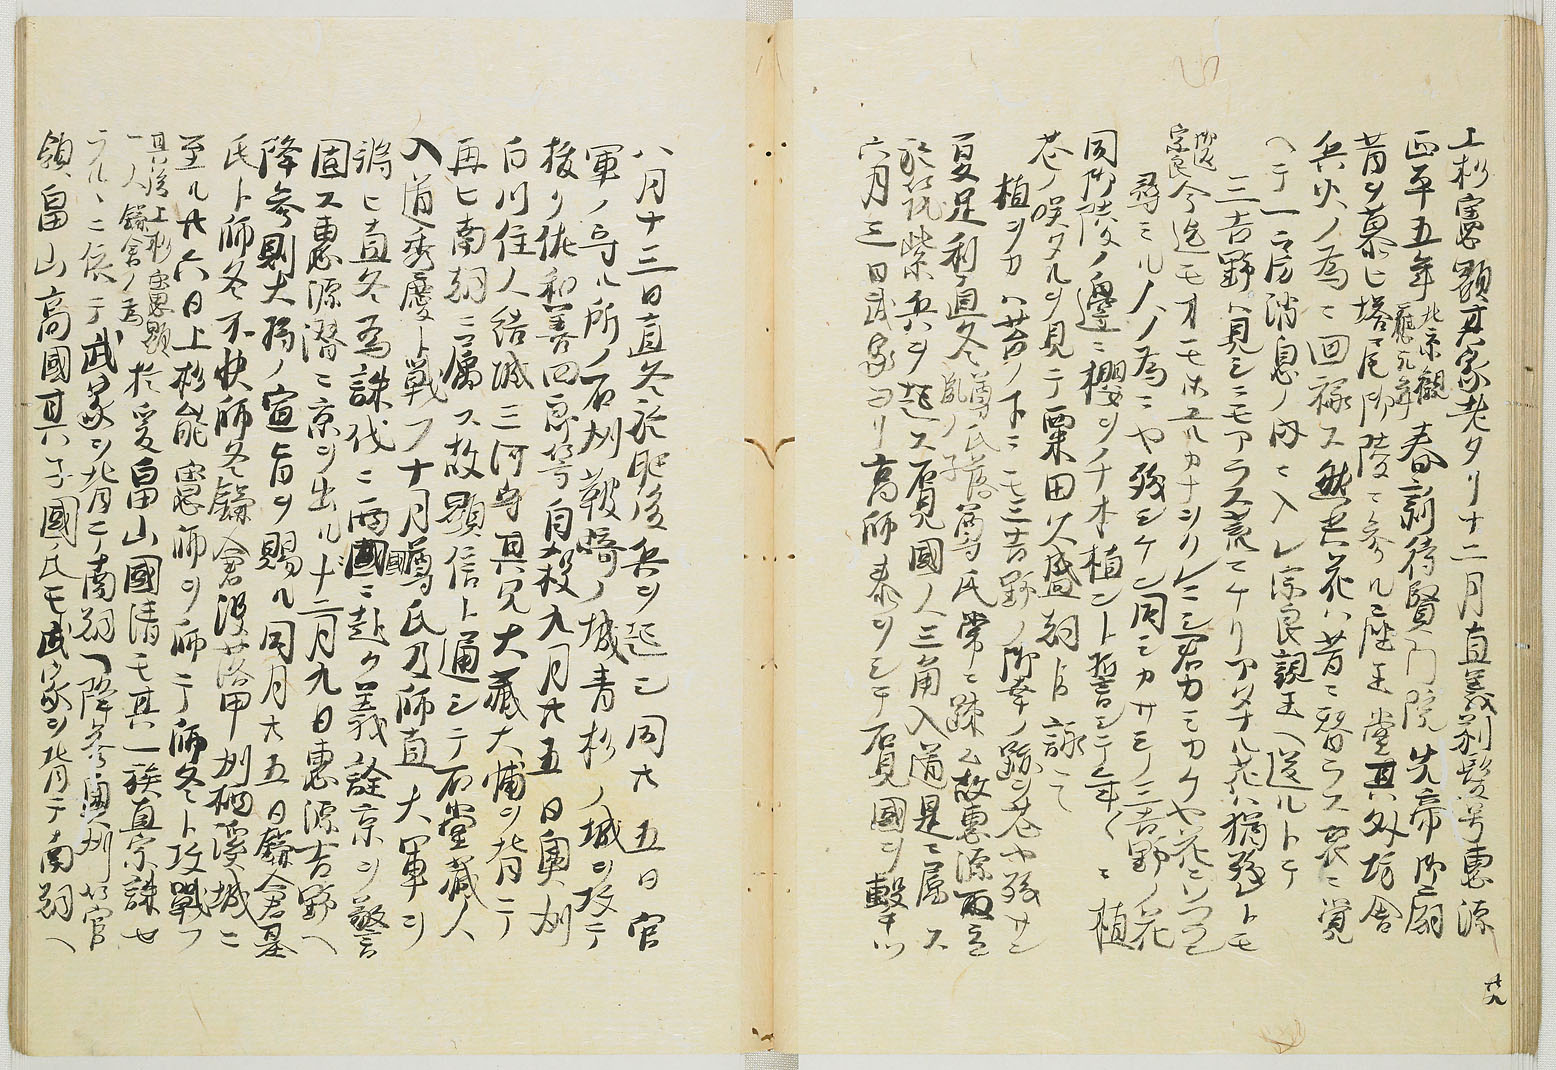 上杉憲顕其家老タリ十二月直義剃髪号恵源
正平五年
北京観
應元年
春新待賢門院先帝御廟
昔ヲ慕ヒ塔尾御陵ニ参ル
堂其外坊舎
兵火ノ為ニ回禄ス然共花ハ昔ニ替ラス哀ニ覚
ヘテ一房消息ノ内ニ入レ宗良親王ヘ送ルトテ
三吉野ハ見シニモアラス荒ニケリアタナル花ハ猶残レトモ
御返
宗良
今迄モ
君カミカケヤ花ニソフラン
尋ミル人ノ為ニヤ残シケン同ミカサミノ三吉野ノ花
同御陵ノ邊ニ櫻ヲ千本植ント誓シテ年々ニ植
花ノ咲タルヲ見テ粟田久盛朝臣詠て
植ヲカハ苔ノ下ニモ三吉野ノ御幸ノ跡ヲ花ヤ残サン
夏足利直冬
尊氏落
胤ノ子
尊氏常ニ疎ム故恵源取立
於筑紫兵ヲ起ス石見國ノ人三角入道是ニ属ス
六月三日武家ヨリ高師泰ヲシテ石見國ヲ撃シム
八月十三日直冬於肥後兵ヲ起シ同廿五日官
軍ノ守ル所ノ石州鞍崎ノ城青杉ノ城ヲ攻テ
抜ク佐和善四郎等自殺九月廿五日奥州
白川住人結城三河守其兄大蔵大輔ヲ背テ
再ヒ南朝ニ属ス故顕信ト通シテ石堂蔵人
入道秀慶ト戦フ十月尊氏及師直大軍ヲ
將ヒ直冬為誅伐ニ西國ニ赴ク義詮京ヲ警
固ス恵源潜ニ京ヲ出ル十二月九日恵源吉野ヘ
降参則大將ノ宣旨ヲ賜ル同月廿五日鎌倉基
氏ト師冬不快師冬鎌倉没落甲州栖澤城ニ
至ル廿六日上杉能憲師ヲ師テ師冬ト攻戦フ
其後上杉憲顕
一人鎌倉ノ為
於爰畠山國清モ其一族直宗誅セ
ラルヽニ依テ武家ヲ背ニ南朝ヘ降参奥州ノ官
領畠山高國其子國氏モ武家ヲ背テ南朝ヘ
廿九